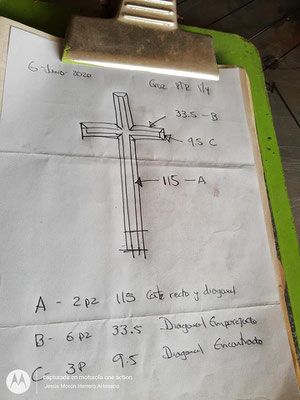 6-Junio 2020
Cruz PTR 1 1/4
33.5 - B
9.5 C
115 - A
A - 2 pz 115 Corte recto y diagonal
B - 6 pz 33.5 Diagonal Emparejado
C 3P 9.5 Diagonal Encontrado
capturada en motorola one action
Jesús Morón Herrero Artesano